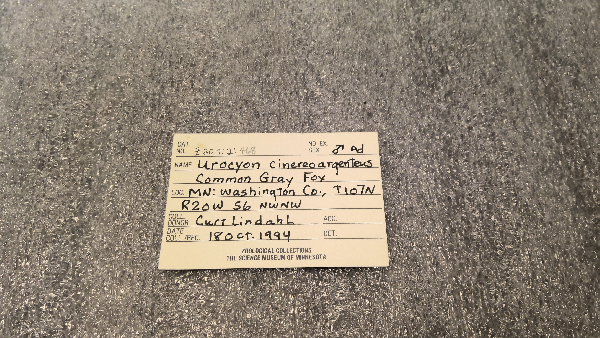 CAT. NO. NO. EX. SEX ♂ Ad
NAME Urocyon cinereoargenteus
Common Gray Fox
LOC. MN: Washington Co., T107N
R20W S6 NWNW
COLL. DONOR Curt Lindahl ACC.
DATE COLL./REC. 18 Oct. 1994 DET.
ZOOLOGICAL COLLECTIONS
THE SCIENCE MUSEUM OF MINNESOTA